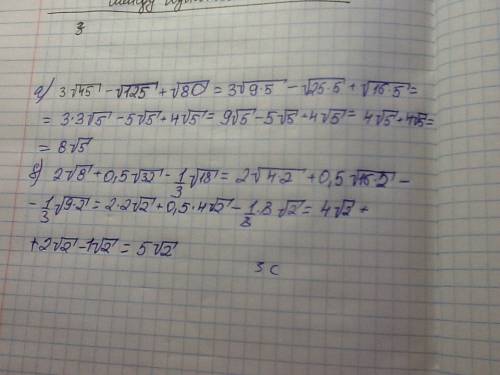 3
a) 3√45 - √125 + √80 = 3√9·5 - √25·5 + √16·5 =
= 3·3√5 - 5√5 + 4√5 = 9√5 - 5√5 + 4√5 = 4√5 + 4√5 =
= 8√5
б) 2√8 + 0,5√32 - 1/3√18 = 2√4·2 + 0,5√16·2 -
- 1/3√9·2 = 2·2√2 + 0,5·4√2 - 1/3·3√2 = 4√2 +
+ 2√2 - 1√2 = 5√2
3 с